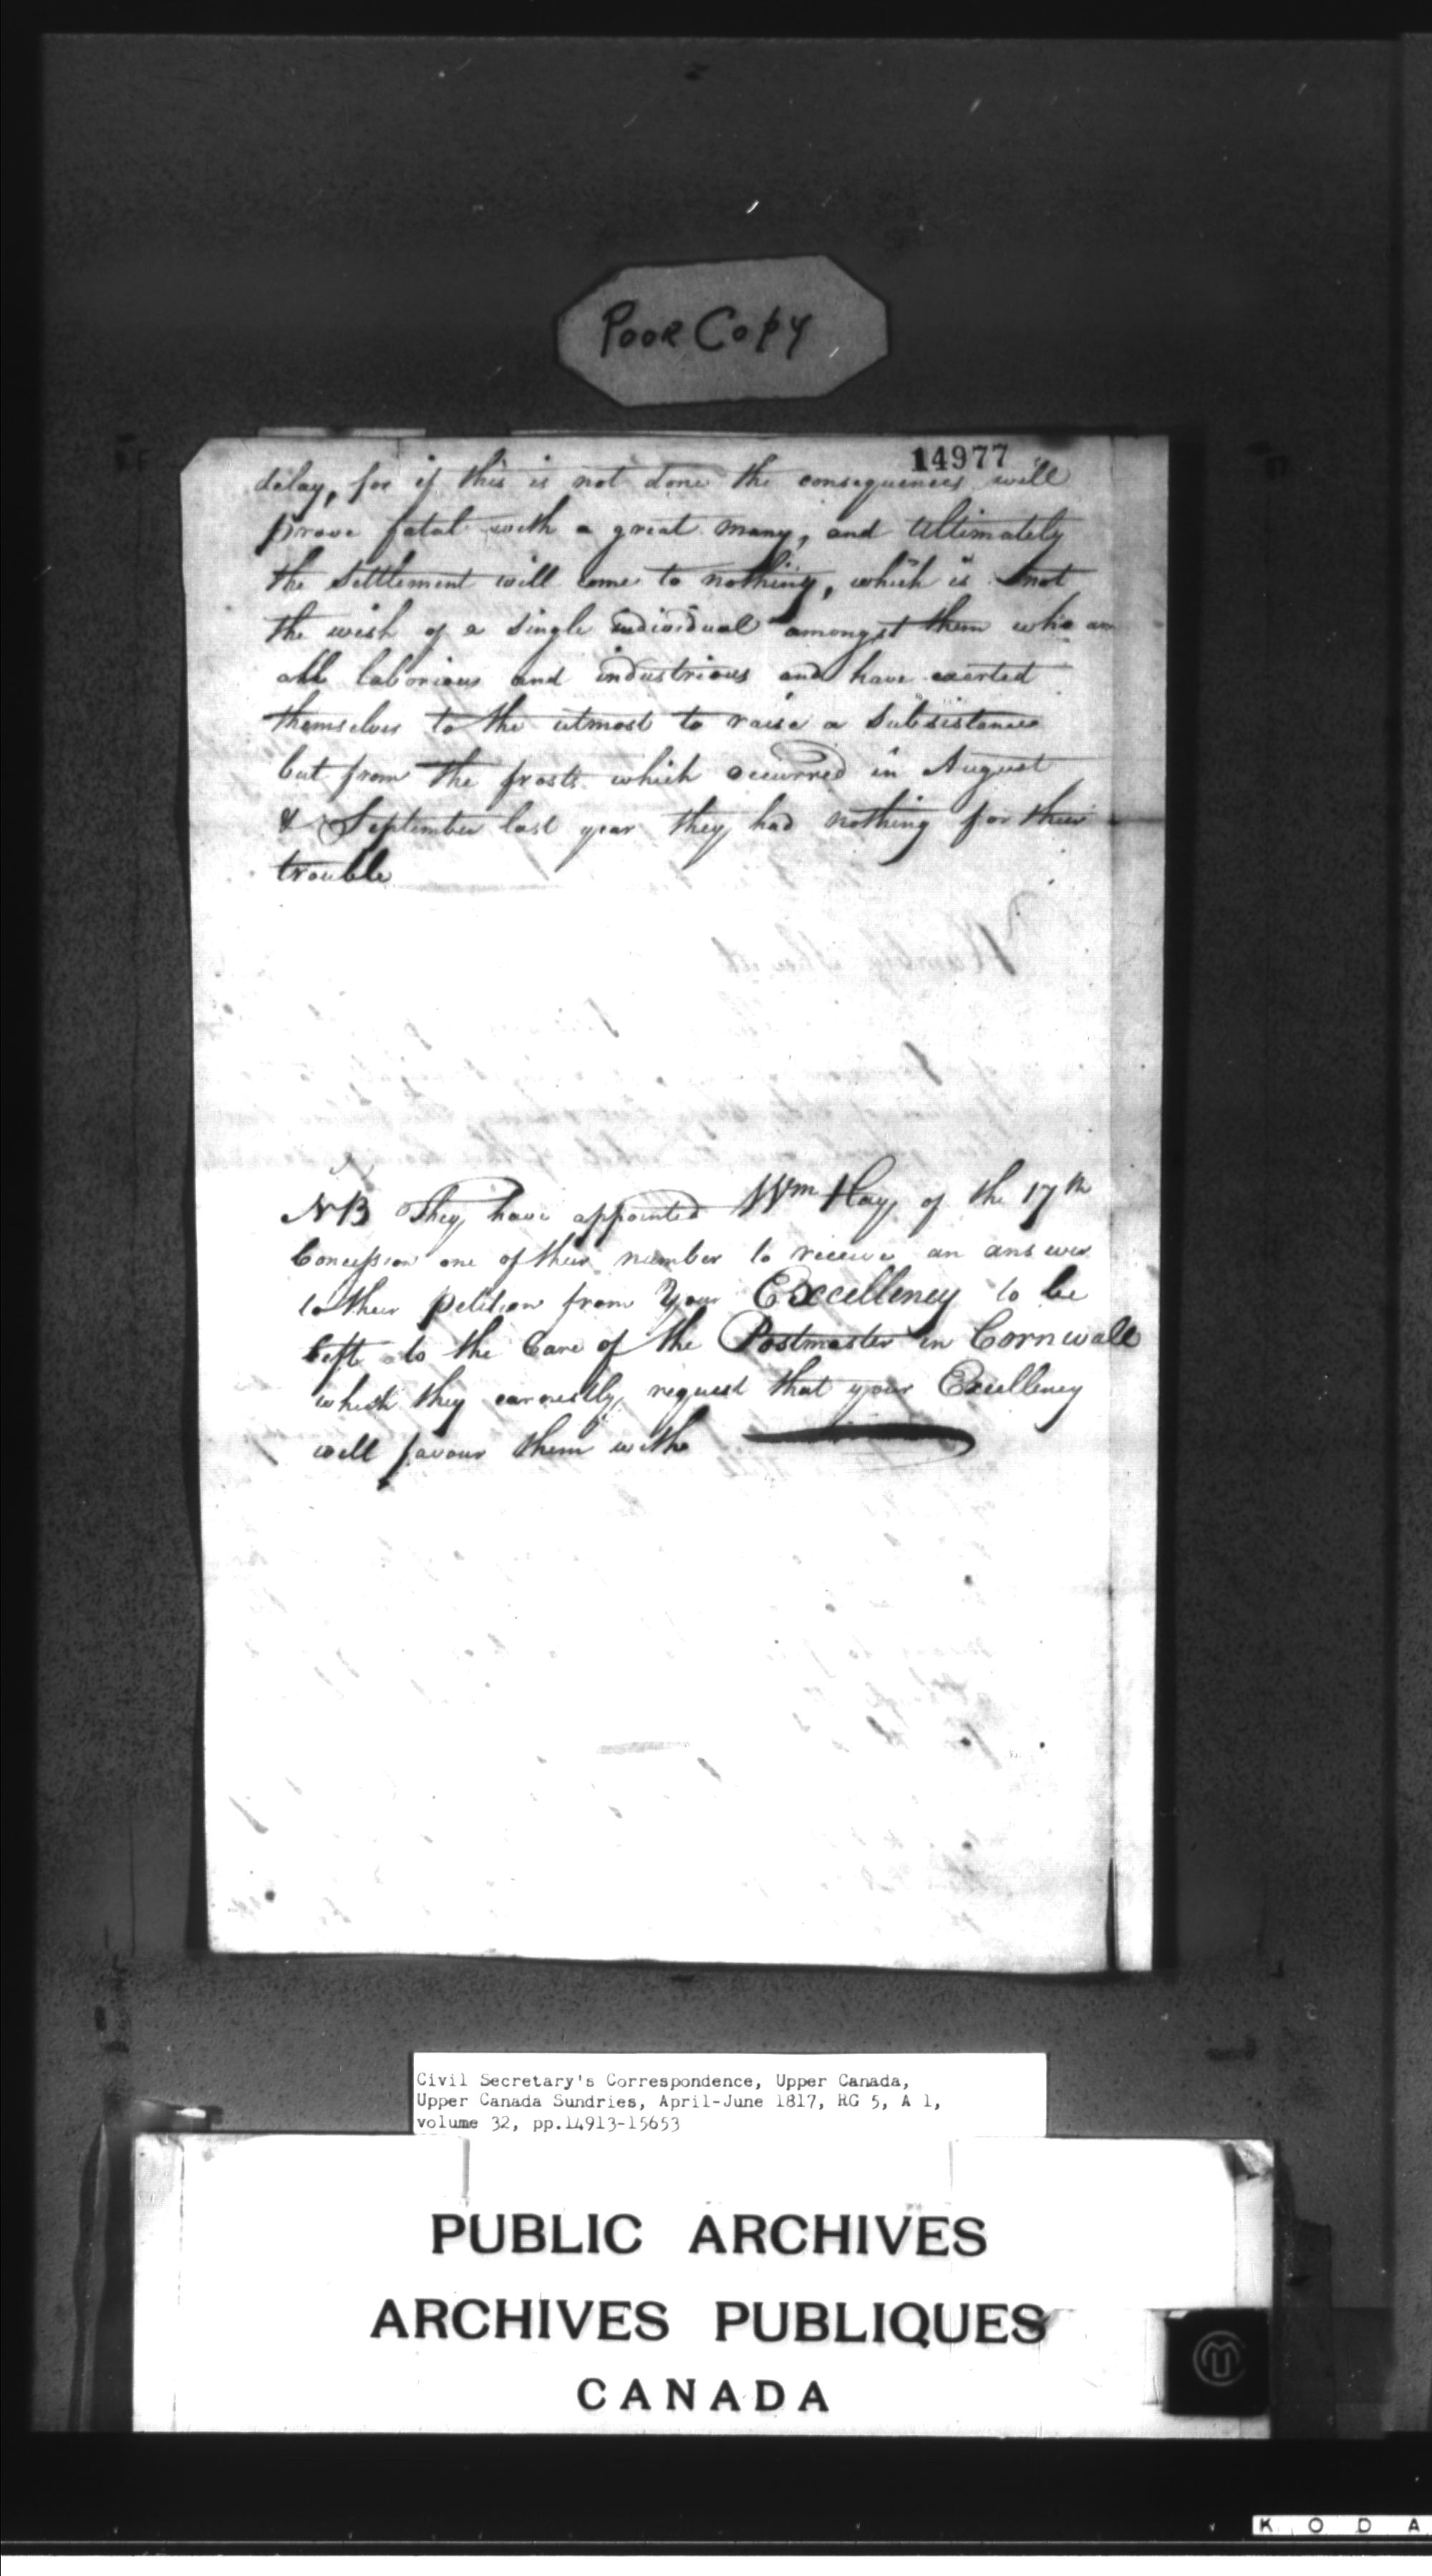 Poor Copy
14977
delay, for if this is not done the consequences will
prove fatal with a great many, and Ultimately
the Settlement will come to nothing, which is not
the wish of a Single individual amongst them who are
all laborious and industrious and have exerted
themselves to the utmost to raise a Subsistance
but from the frosts which occurred in August
& September last year they had nothing for their
trouble
NB They have appointed Wm Hay of the 17th
Concession one of their number to receive an answer
to their petition from Your Excellency to be
left to the Care of the Postmaster in Cornwall
which they earnestly request that your Excellency
will favour them with
Civil Secretary's Correspondence, Upper Canada,
Upper Canada Sundries, April-June 1817, RG 5, A 1,
volume 32, pp.14913-15653
PUBLIC ARCHIVES
ARCHIVES PUBLIQUES
CANADA
K O D A